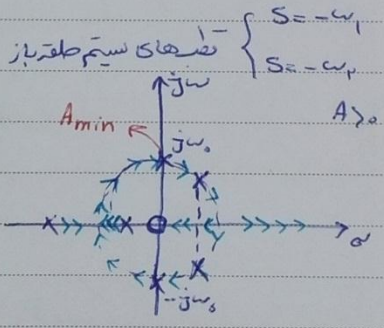 قطب‌های سیستم حلقه‌باز { S = -ω₁
S = -ω₂
A>0
jω
Amin
jω₀
σ
-jω₀